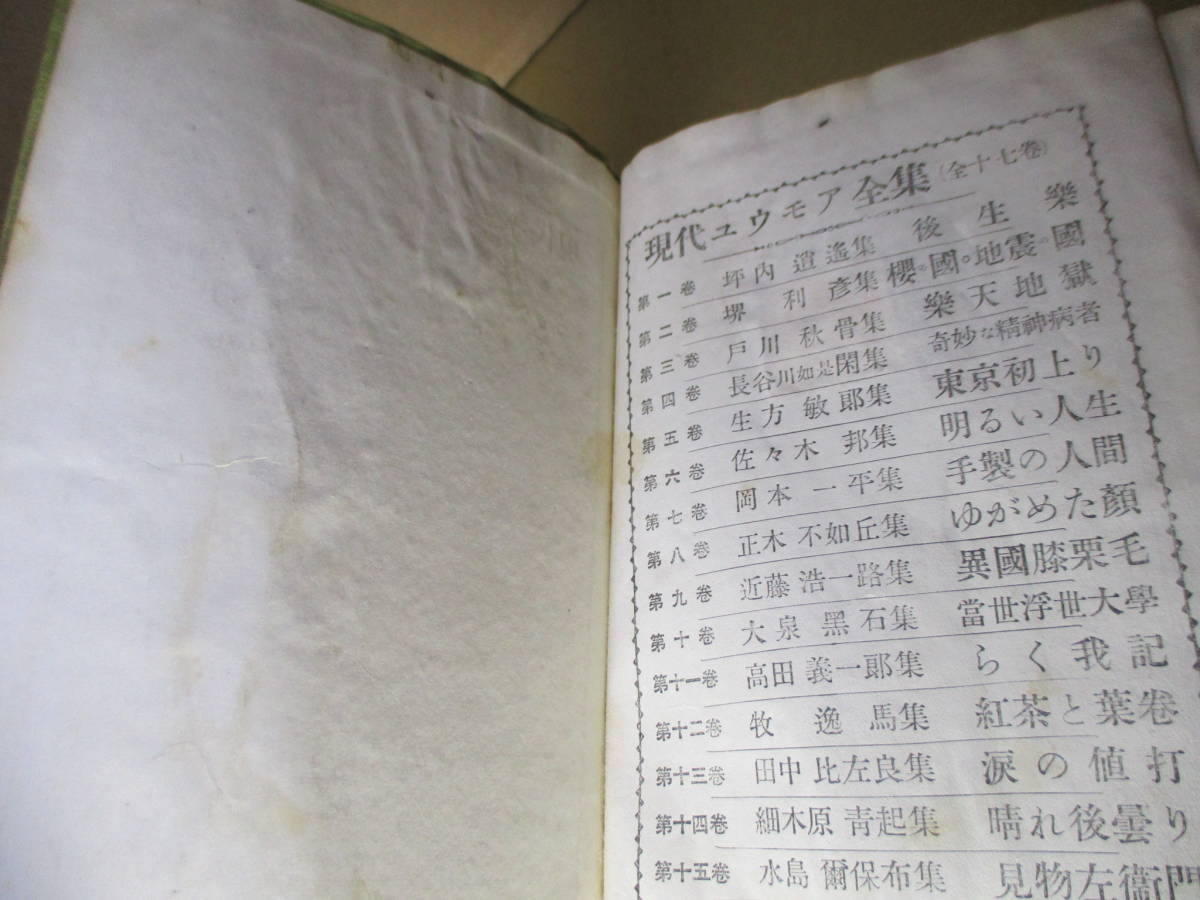 現代ユウモア全集(全十七卷)
第一卷 坪内逍遙集 後生樂
第二卷 堺利彥集 櫻の國・地震の國
第三卷 戸川秋骨集 樂天地獄
第四卷 長谷川如是閑集 奇妙な精神病者
第五卷 生方敏郞集 東京初上り
第六卷 佐々木邦集 明るい人生
第七卷 岡本一平集 手製の人間
第八卷 正木不如丘集 ゆがめた顏
第九卷 近藤浩一路集 異國膝栗毛
第十卷 大泉黑石集 當世浮世大學
第十一卷 高田義一郞集 らく我記
第十二卷 牧逸馬集 紅茶と葉卷
第十三卷 田中比左良集 淚の値打
第十四卷 細木原靑起集 晴れ後曇り
第十五卷 水島爾保布集 見物左衞門